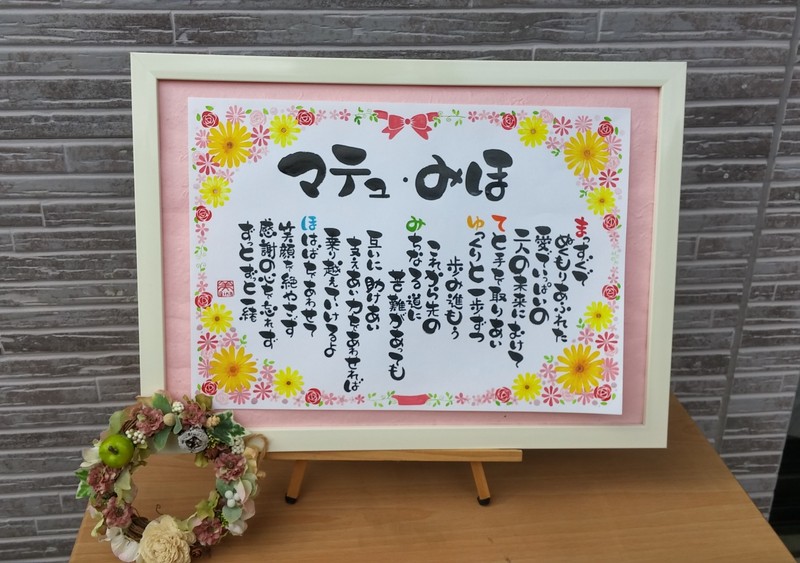 マテュ・みほ
まっすぐで
ぬくもりあふれた
愛でいっぱいの
二人の未来にむけて
てと手を取りあい
ゆっくりと一歩ずつ
歩み進もう
これから先の
みちなる道に
苦難があっても
互いに助けあい
支えあい力をあわせれば
乗り越えていけるよ
ほほばをあわせて
笑顔を絶やさず
感謝の心を忘れず
ずっとずっと一緒